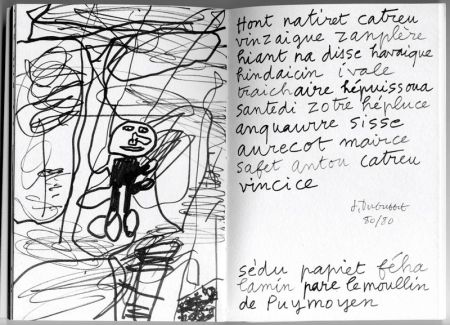 Hont natiret catreu
vinzaigue zanplère
hiant na disse havaigue
hindaicin ivale
traichaire hépuissoua
santedi zotre hépluce
anquaurre sisse
aurecot mairce
safet antou catreu
vincice
J. Dubuffet
80/80
sèdu papiet féha
lamin pare le moullin
de Puymoyen